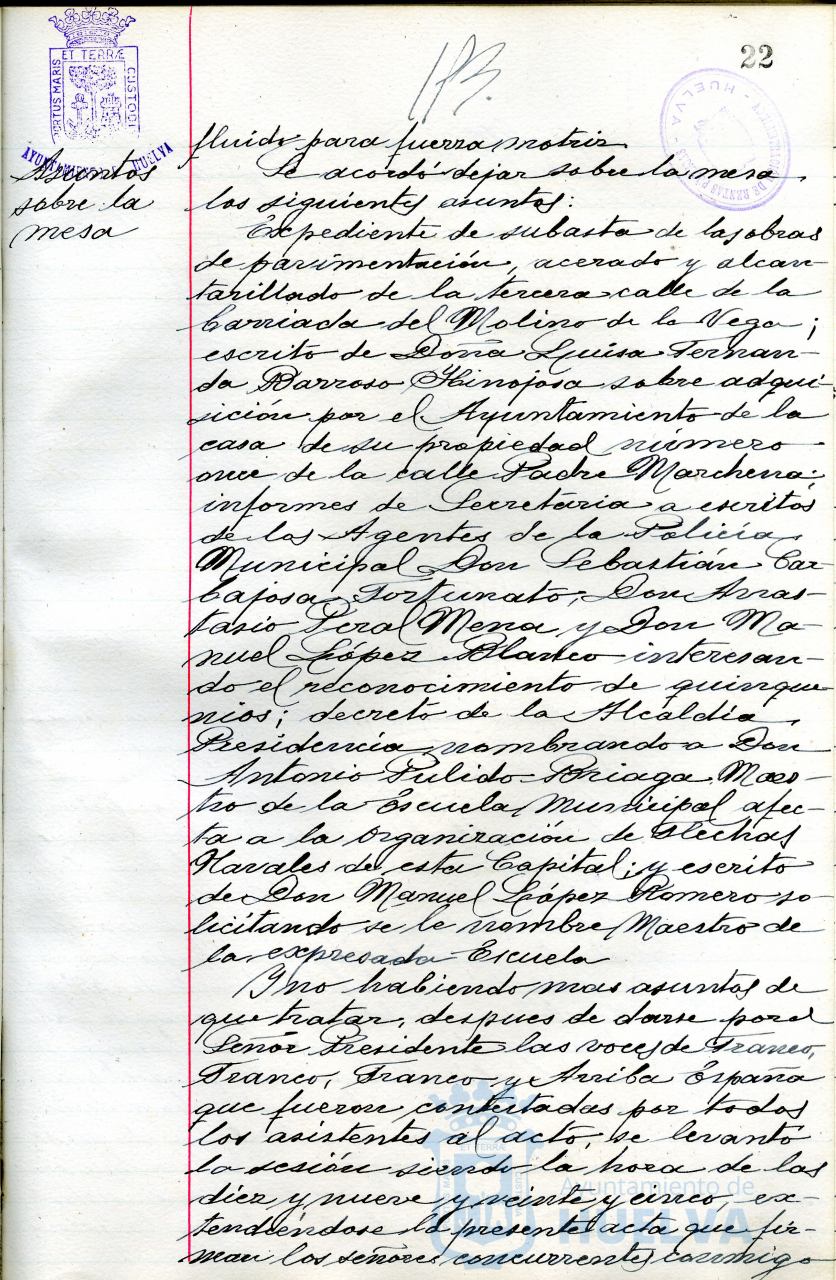 22
ET TERRÆ
PORTUS MARIS
CUSTODI
AYUNTAMIENTO DE HUELVA
HUELVA
Asuntos
sobre la
mesa
fluido para fuerza motriz
Se acordó dejar sobre la mesa
los siguientes asuntos:
Expediente de subasta de las obras
de pavimentación, acerado y alcan-
tarillado de la tercera calle de la
barriada del Molino de la Vega;
escrito de Doña Luisa Fernan-
da Barroso Hinojosa sobre adqui-
sición por el Ayuntamiento de la
casa de su propiedad número
once de la calle Padre Marchena;
informes de Secretaria a escritos
de los Agentes de la Policía
Municipal Don Sebastián Car-
bajosa Fortunato, Don Anas-
tasio Peral Mena y Don Ma-
nuel López Blanco interesan-
do el reconocimiento de quinque-
nios; decreto de la Alcaldía
Presidencia nombrando a Don
Antonio Pulido Maes-
tro de la Escuela Municipal afec-
ta a la Organización de Flechas
Navales de esta Capital; y escrito
de Don Manuel López Romero so-
licitando se le nombre Maestro de
la expresada Escuela
Y no habiendo mas asuntos de
que tratar, despues de darse por el
Señor Presidente las voces de Franco,
Franco, Franco y Arriba España
que fueron contestadas por todos
los asistentes al acto, se levantó
la sesión siendo la hora de las
diez y nueve y veinte y cinco, ex-
tendiéndose la presente acta que fir-
man los señores concurrentes conmigo
ET TERRÆ
Ayuntamiento de
HUELVA